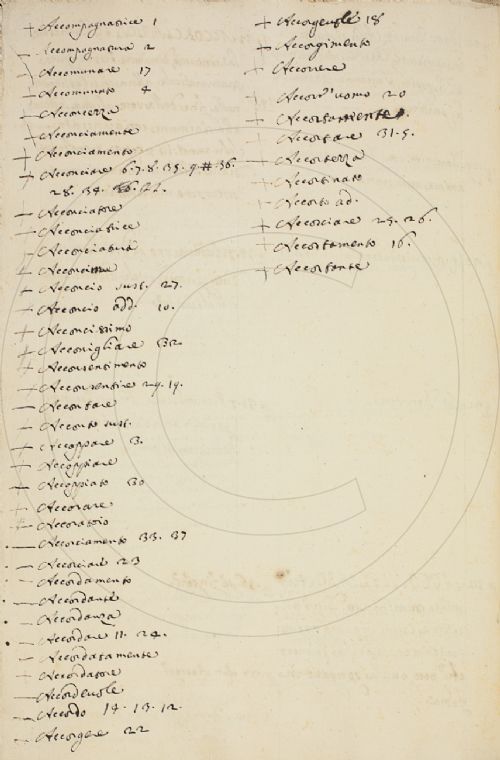 + Accompagnatrice 1
— Accompagnatura 2
+ Accomunare 17
+ Accomunato 4
+ Acconcezza
+ Acconciamente
+ Acconciamento
+ Acconciare 6. 7. 8. 35. 9. # . 36.
28. 34.
+ Acconciatore
+ Acconciatrice
+ Acconciatura
— Acconcime
+ Acconcio sust. 27.
+ Acconcio add. 10.
+ Acconcissimo
+ Acconigliare 32
+ Acconsentimento
+ Acconsentire 29. 19.
— Accontare
— Acconto sust.
+ Accoppare 3.
— Accoppiare
— Accoppiato 30
+ Accorare
+ Accoratoio
— Accorciamento 33. 37
— Accorciare 23
— Accordamento
— Accordante
— Accordanza
— Accordare 11. 24.
— Accordatamente
— Accordatore
— Accordevole
— Accordo 14. 13. 12.
— Accorgere 22
+ Accorgevole 18
+ Accorgimento
+ Accorrere
+ Accorr'uomo 20
+ Accortamente
+ Accortare 31. 5.
+ Accortezza
+ Accortinato
+ Accorto ad.
+ Accorciare 25. 26.
+ Accortamento 16.
+ Accortante